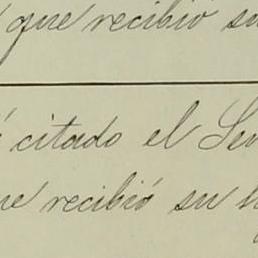 que recibió su
citado el Sen
ue recibió su h